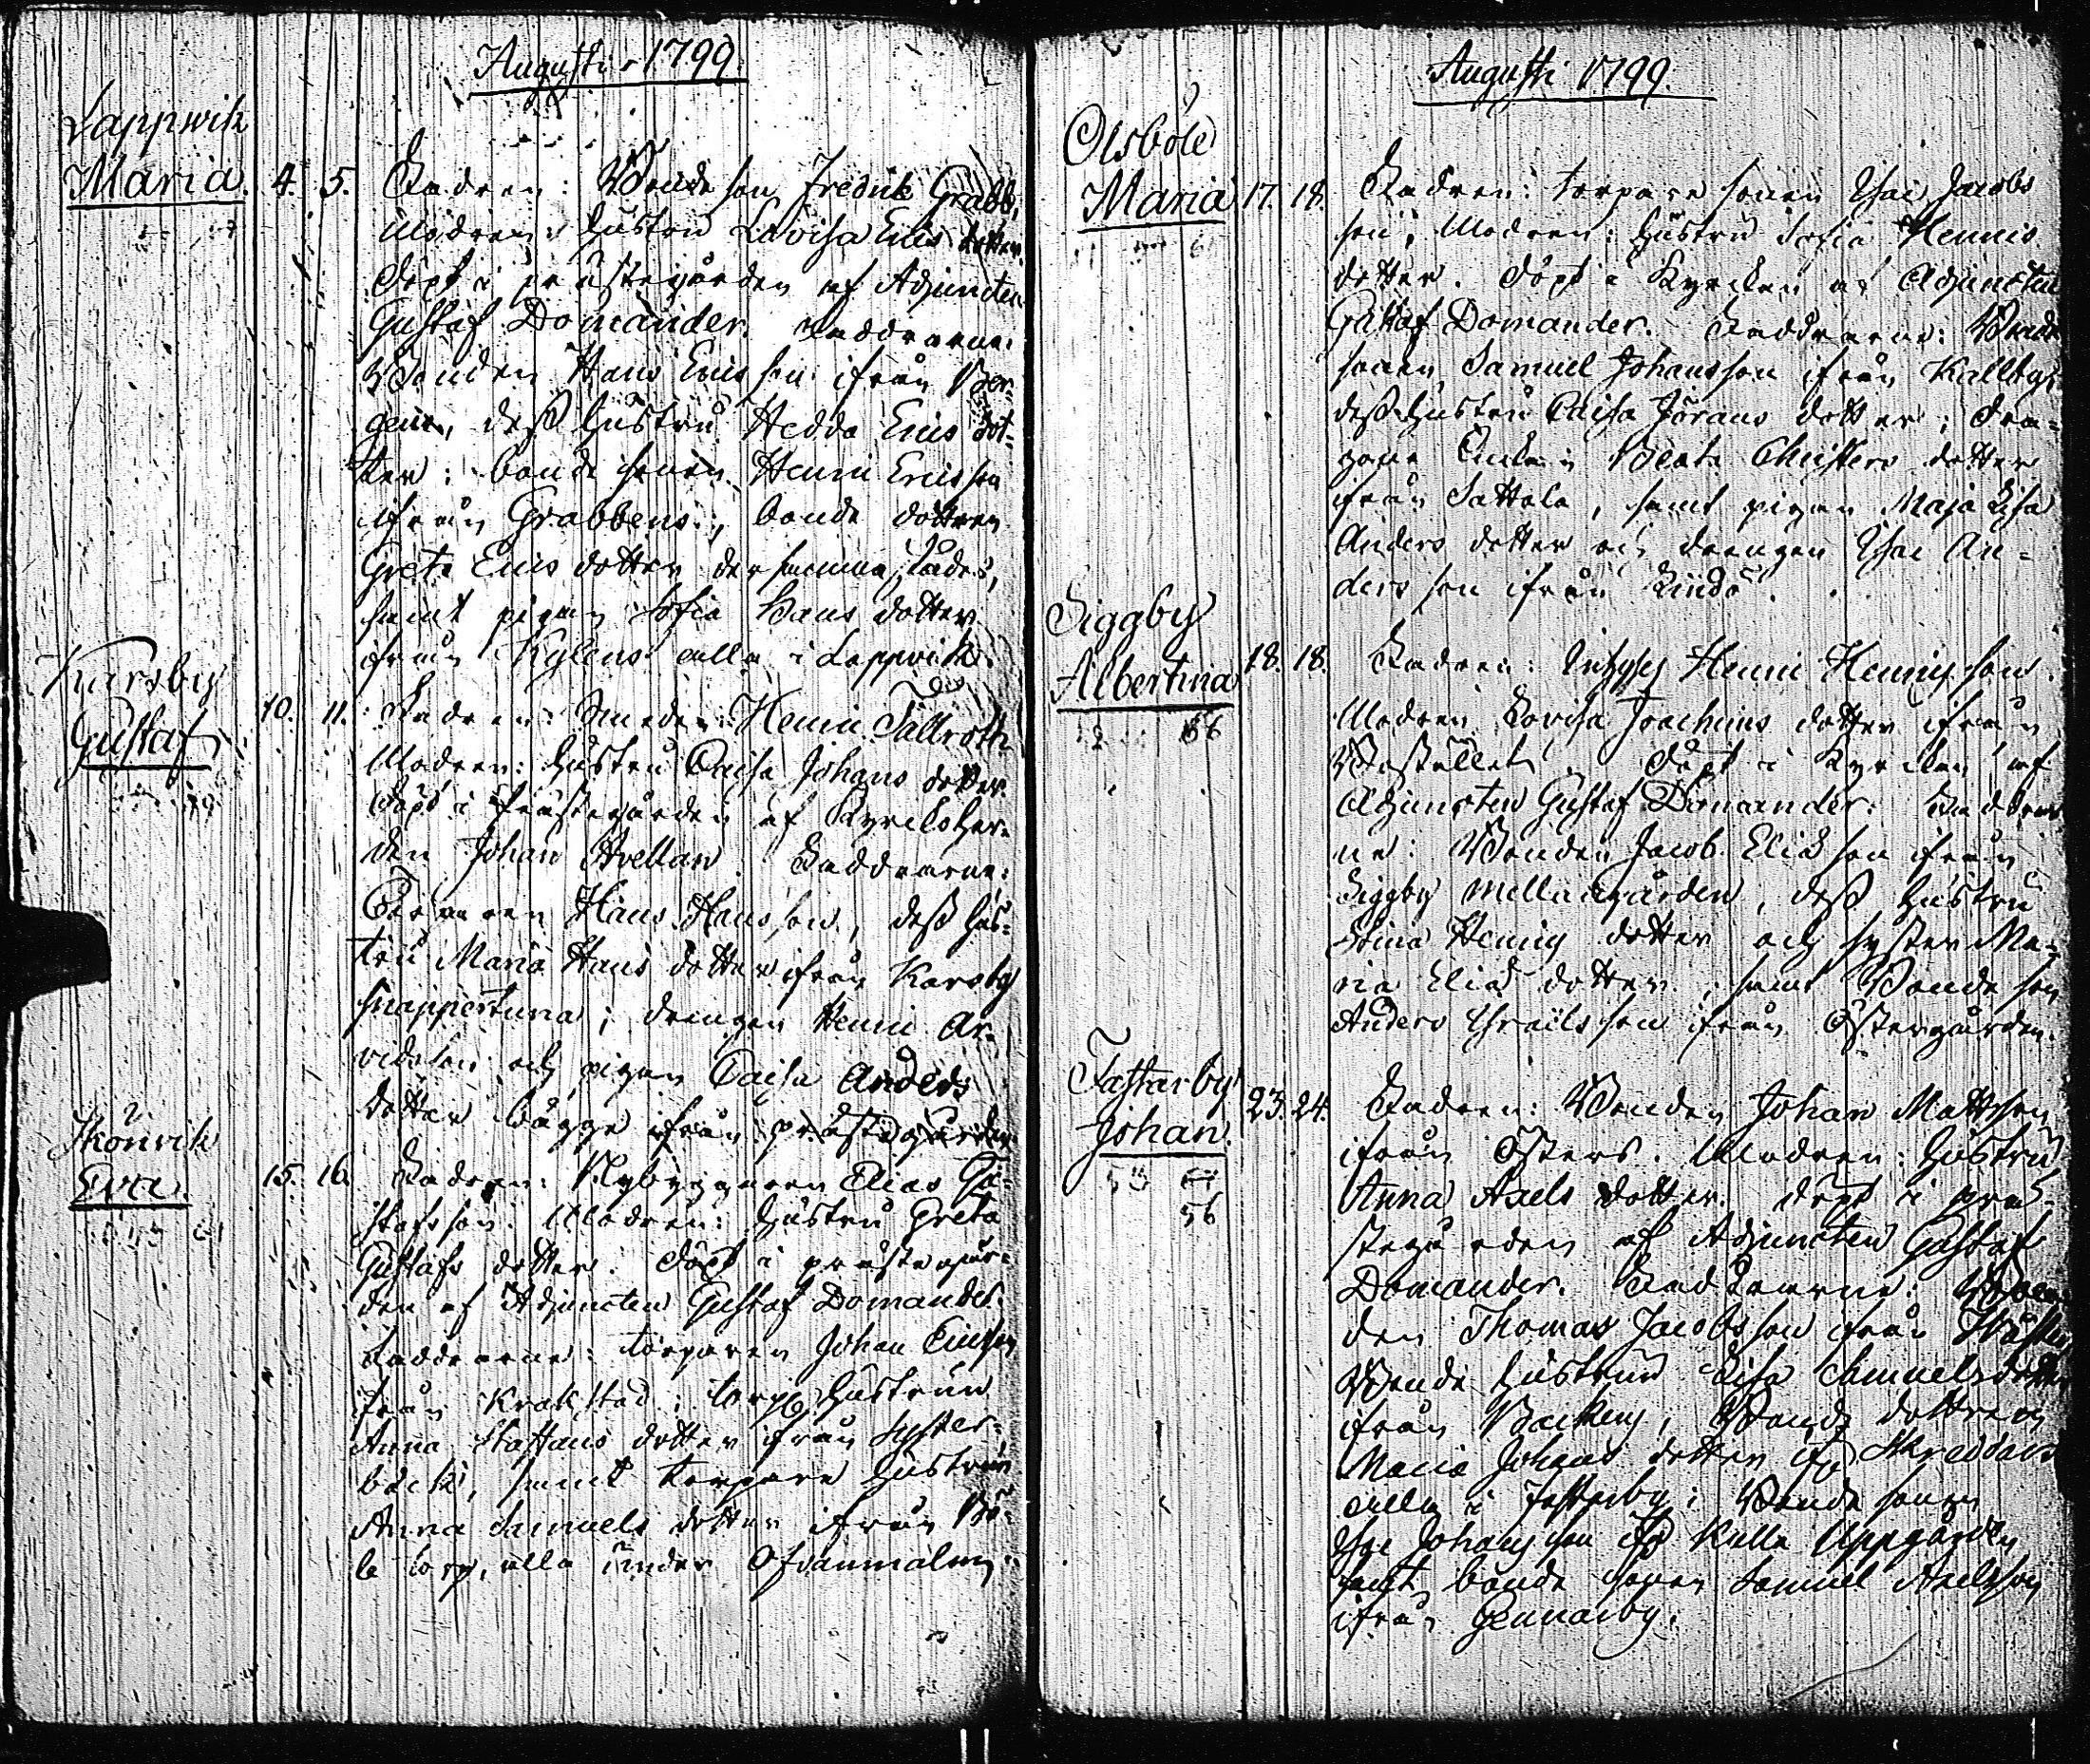 Augusti 1799
Lappwik
Maria. 4. 5. Fadren: Bonde son Fredric Grabb,
Modren: hustru Lovisa Erics dotter.
döpt i prästegården af Adjuncten
Gustaf Domander. Faddrarne:
Bonden Hans Ericsson ifrån Ber-
gens, dess hustru Hedda Erics dot-
ter; bonde sonen Henric Ericsson
ifrån Grabbens; bonde dottren
Greta Erics dotter der sammastädes,
samt pigan Sofia Hans dotter
ifrån Kylens alla i Lappvik.
Karsby
Gustaf 10. 11. Fadren: Smeden Henric Tallroth
Modren: hustru Caisa Johans dotter.
döpt i prästegården af Kyrkoher-
den Johan Avellan. Faddrarne:
Hans Hansson, dess hus-
tru Maria Hans dotter ifrån Karsby
Snappertuna; drengen Henric Ar-
vidsson och pigan Caisa Anders
dotter bägge ifrån prästegården.
Skönvik
Eva. 15. 16. Fadren: Nybyggaren Elias Gu-
stafsson. Modren: hustru Greta
Gustafs dotter. döpt i prästegår-
den af Adjuncten Gustaf Domander.
Faddrarne: torparen Johan Ericsson
ifrån Krakstad; torp hustrun
Anna Staffans dotter ifrån Syster-
bäck, samt torpare hustrun
Anna Samuels dotter ifrån Bö-
le torp, alla under Ofvanmalm.
Augusti 1799.
Olsböle
Maria 17. 18. Fadren: torpare sonen Isac Jacobs
son, Modren: hustru Sofia Henrics
dotter. döpt i Kyrckan af Adjuncten
Gustaf Domander. Faddrarne: Bonde
sonen Samuel Johansson ifrån Kallby,
dess hustru Caisa Jörans dotter; Dra-
gone Enkan Beata Christers dotter
ifrån Sattala, samt pigan Maja Lisa
Anders dotter och drengen Isac An-
ders son ifrån Lindö.
Siggby
Albertina 18. 18. Fadren: Henric Henrics son.
66
Modren Lovisa Joachims dotter ifrån
Bostället. döpt i Kyrckan af
Adjuncten Gustaf Domander. Faddrar-
ne: Bonden Jacob Elisson ifrån
Siggby mellangården, dess hustru
Stina Henrics dotter och syster Ma-
ria Elias dotter, samt Bonde son
Anders Israëls son ifrån Östergården.
Fastarby
Johan. 23. 24. Fadren: Bonden Johan Mattsson
56
ifrån Östers. Modren: hustru
Anna Axels dotter. döpt i prä-
stegården af Adjuncten Gustaf
Domander. Faddrarne: Bon-
den Thomas Jacobsson ifrån
Bonde hustrun Lisa Samuels dotter
ifrån Backens, Bonde dottren
Maria Johans dotter ifr. Skreddars
alla i Fastarby; Bonde sonen
Isac Johansson ifr. Kulla Uppgården
samt bonde sonen Samuel Axelsson
ifrån Gennarby.